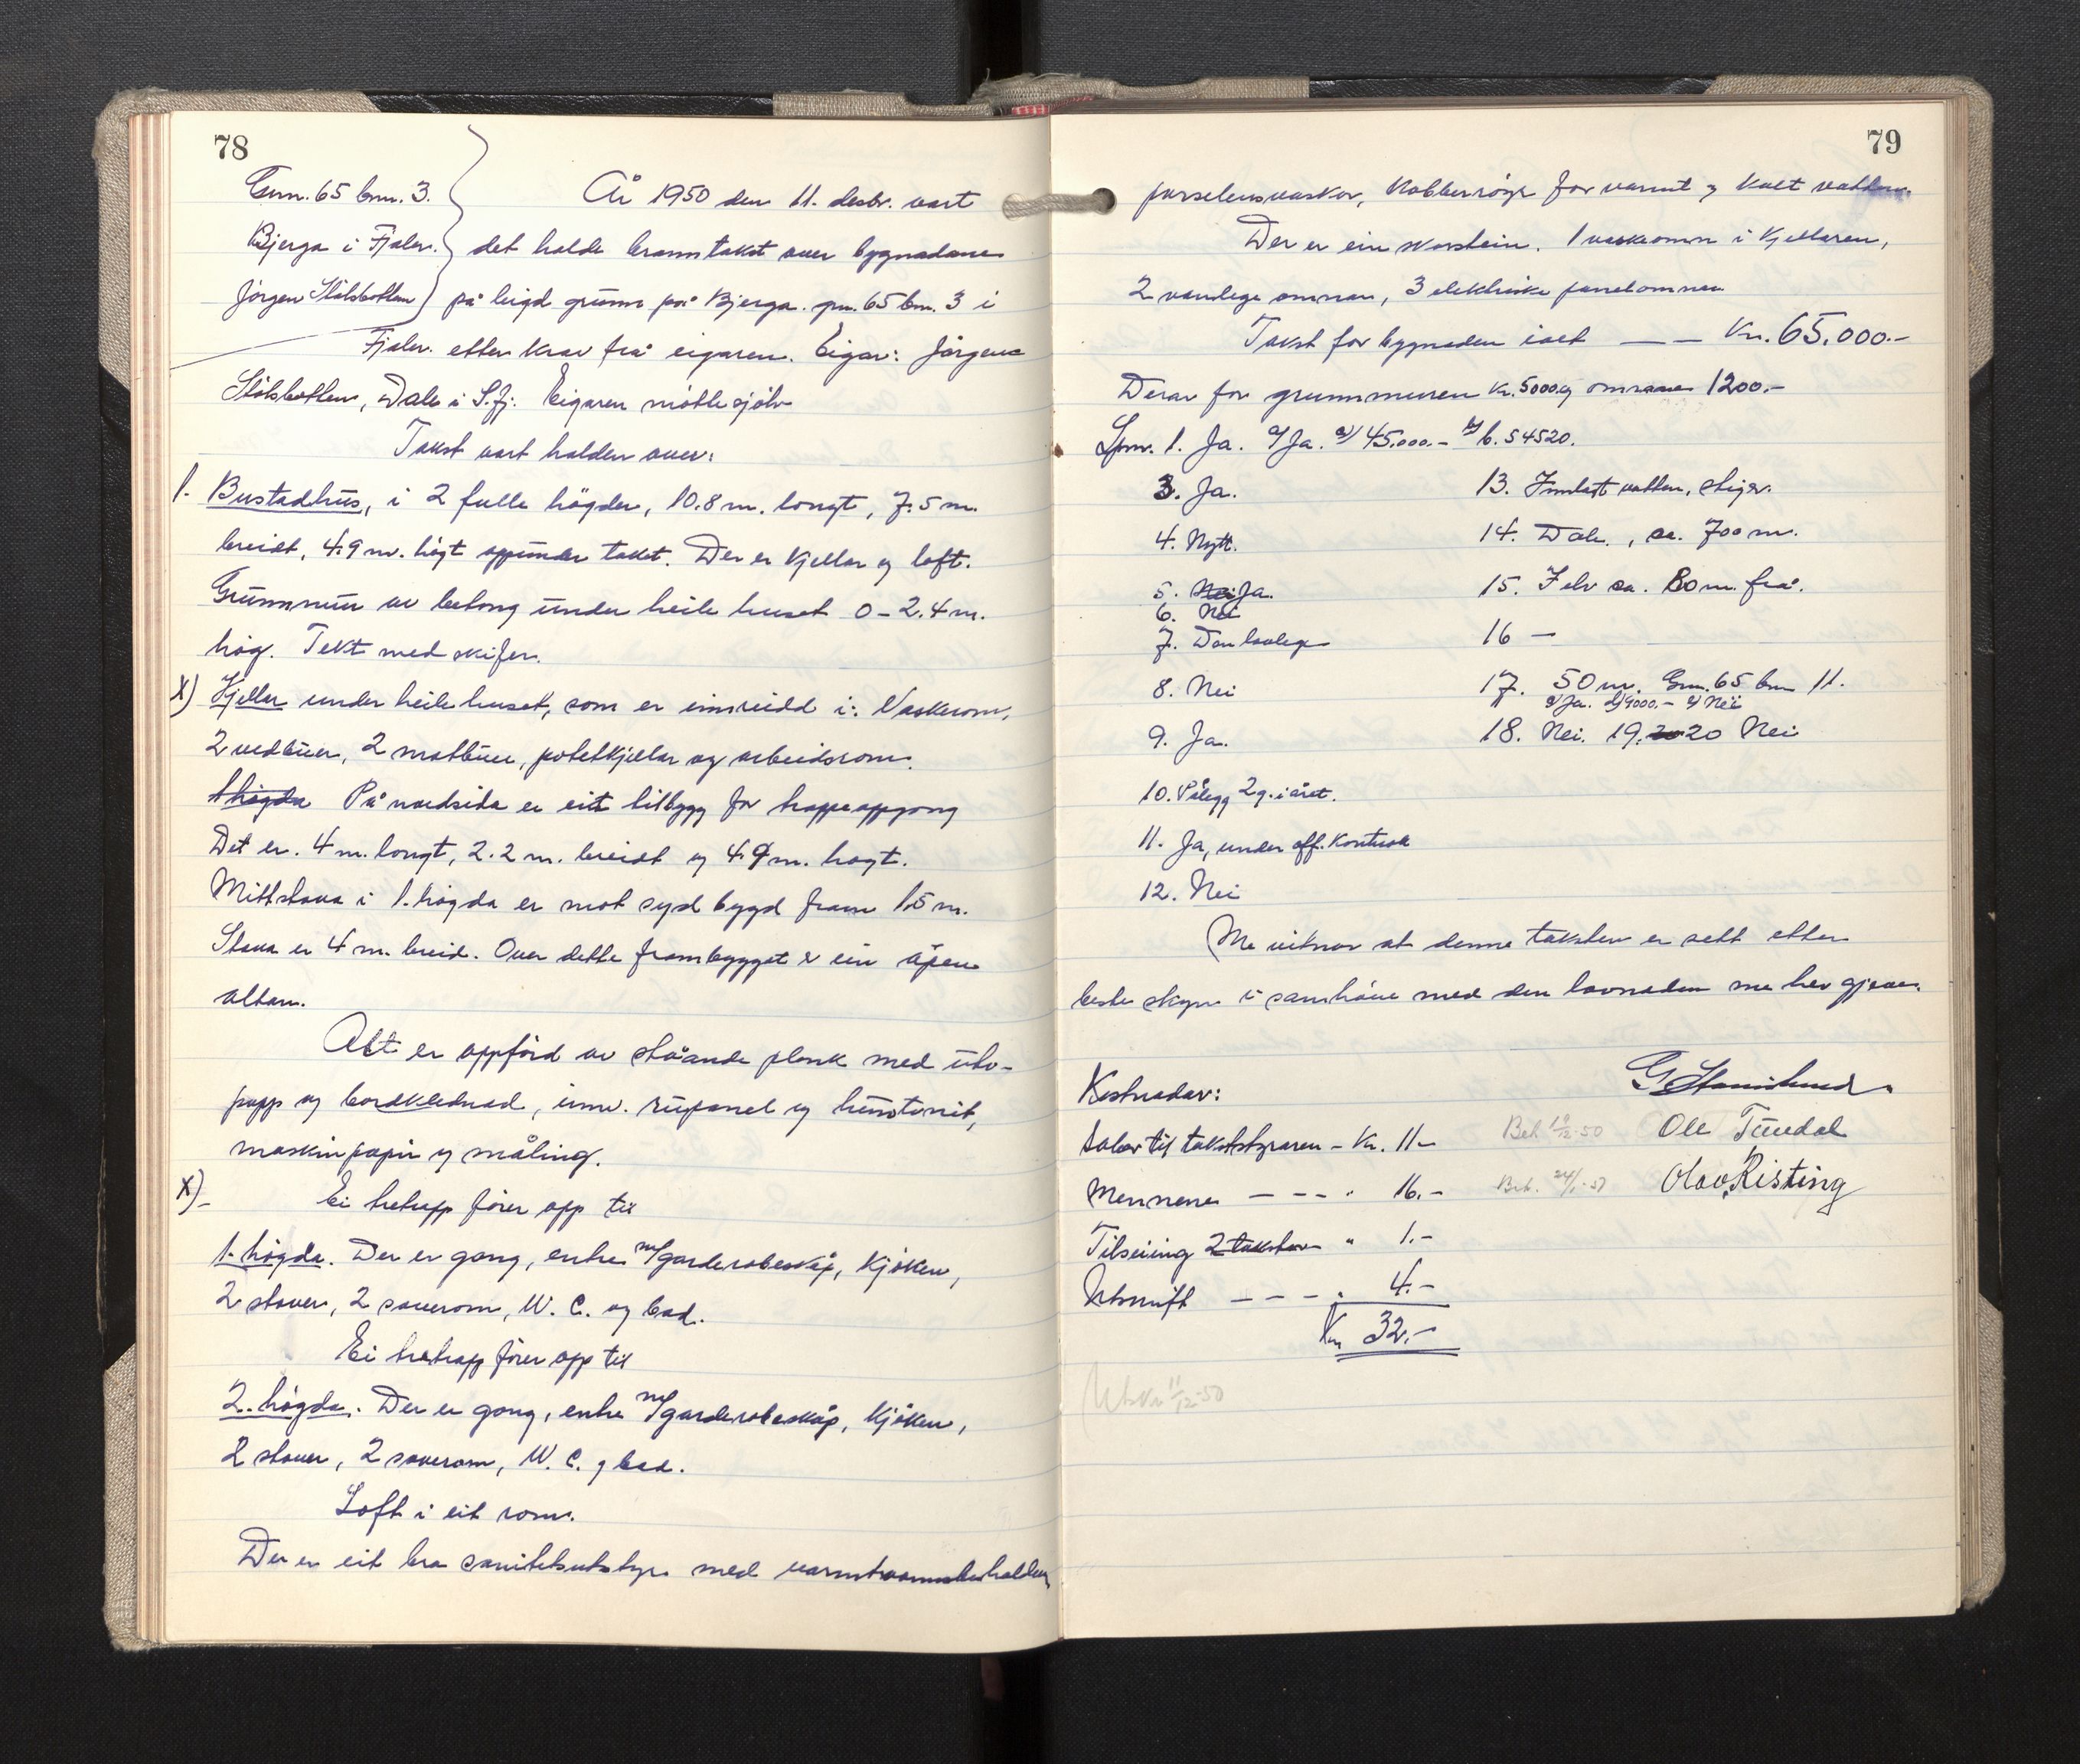 78
Gnr. 65 bnr. 3.
Bjerga i Fjaler.
Jörgen Stölsbotten
År 1950 den 11. desbr. vart
det halde branntakst over bygnadane
på leigd grunn på Bjerga. gnr. 65 bnr. 3 i
Fjaler. etter krav frå eigaren. Eigar: Jörgen
Stölsbotten, Dale i S.fj. Eigaren mötte sjölv
Takst vart halden over:
1. Bustadhus, i 2 fulle högder, 10.8 m. langt, 7.5 m.
breidt, 4.9 m. högt oppunder taket. Der er kjellar og loft.
Grunnmur av betong under heile huset 0-2.4 m.
hög. Tekt med skifer.
X) Kjellar under heile huset, som er innreidd i: Vaskerom,
2 vedbuer, 2 matbuer, potetkjellar og arbeidsrom.
1 högda På nordsida er eit tilbygg for trappeoppgang
Det er. 4 m. langt, 2.2 m. breidt og 4.9 m. högt.
Mittstova i 1. högda er mot syd bygd fram 1.5 m.
Stova er 4 m. breid. Over dette frambygget er ein åpen
altan.
Alt er oppförd av ståande plank med utv-
papp og bordklednad, innv. rupanel og huntonit,
maskinpapir og måling.
X)- Ei tretrapp förer opp til
1. högda. Der er gang, entre m/garderobeskåp, kjöken,
2 stover, 2 soverom, W. C. og bad.
Ei tretrapp förer opp til
2. högda. Der er gang, entre m/garderobeskåp, kjöken,
2 stover, 2 soverom, W. C. og bad.
Loft i eit rom.
Der er eit bra sanitetsutstyr med varmtvannsbeholder,
79
porselensvaskar, kobberrör for varmt og kalt vatten.
Der er ein skorstein. 1 vaskeomn i kjellaren,
2 vanlege omnar, 3 elektriske panelomnar
Takst for bygnaden ialt — — Kr. 65.000.-
Derav for grunnmuren kr. 5000 og omnane 1200.-
Spm. 1. Ja. 2/ Ja. a)/ 45.000.- b/ b. 54520.
3. Ja.
4. Nytt.
5. Nei Ja.
6. Nei
7. Den lovlege
8. Nei
9. Ja.
10. Pålegg 2 g. i året.
11. Ja, under off. kontroll
12. Nei
13. Innlagt vatten, stiger.
14. Dale, ca. 700 m.
15. I elv ca. 80 m. frå.
16 —
17. 50 m. Gnr. 65 bnr 11.
a/ Ja. b/ 9000.- c/ Nei
18. Nei. 19. 20 20 Nei
Me vitnar at denne taksten er sett etter
beste skyn i samhöve med den lovnaden me hev gjeve.
G Stavislund
Ole Tuedal
Olav Risting
Kostnadar:
Salær til takststyraren - Kr. 11.- Bet 19/12-50
Mennene — — — " 16.- Bet. 24/1-51
Tilseiing 2 takstar " 1.-
Utskrift — — — " 4.-
Kr 32.-
Utskr 11/12-50